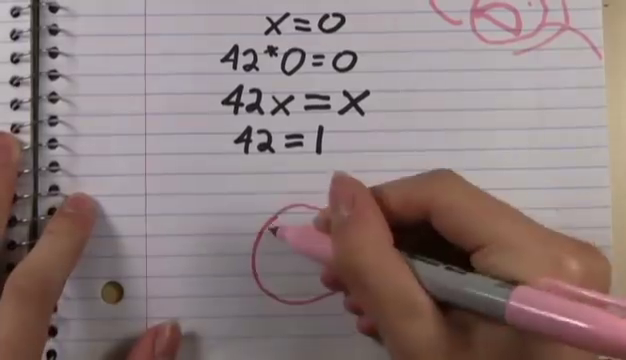 x=0
42*0=0
42x=x
42=1